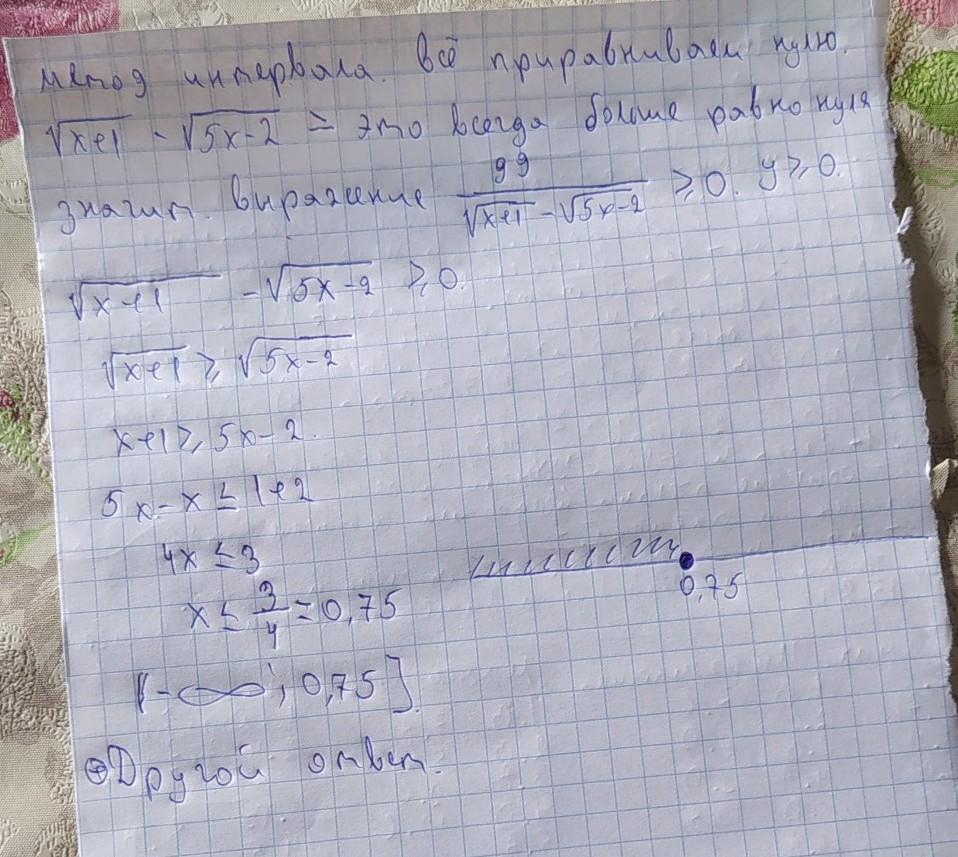 метод интервала. Всё приравниваем нулю.
√x+1 - √5x-2 = это всегда больше равно нуля
значит. выражение 99/(√x+1 - √5x-2) ≥ 0. y ≥ 0.
√x+1 - √5x-2 ≥ 0.
√x+1 ≥ √5x-2
x+1 ≥ 5x-2.
5x-x ≤ 1+2
4x ≤ 3
x ≤ 3/4 = 0,75
0,75
(-∞; 0,75].
Другой ответ.